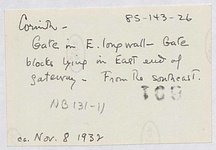 Corinth - 85-143-26
Gate in E. long wall - Gate
blocks lying in East end of
gateway - From the southeast.
NB 131-11
ca. Nov. 8 1932